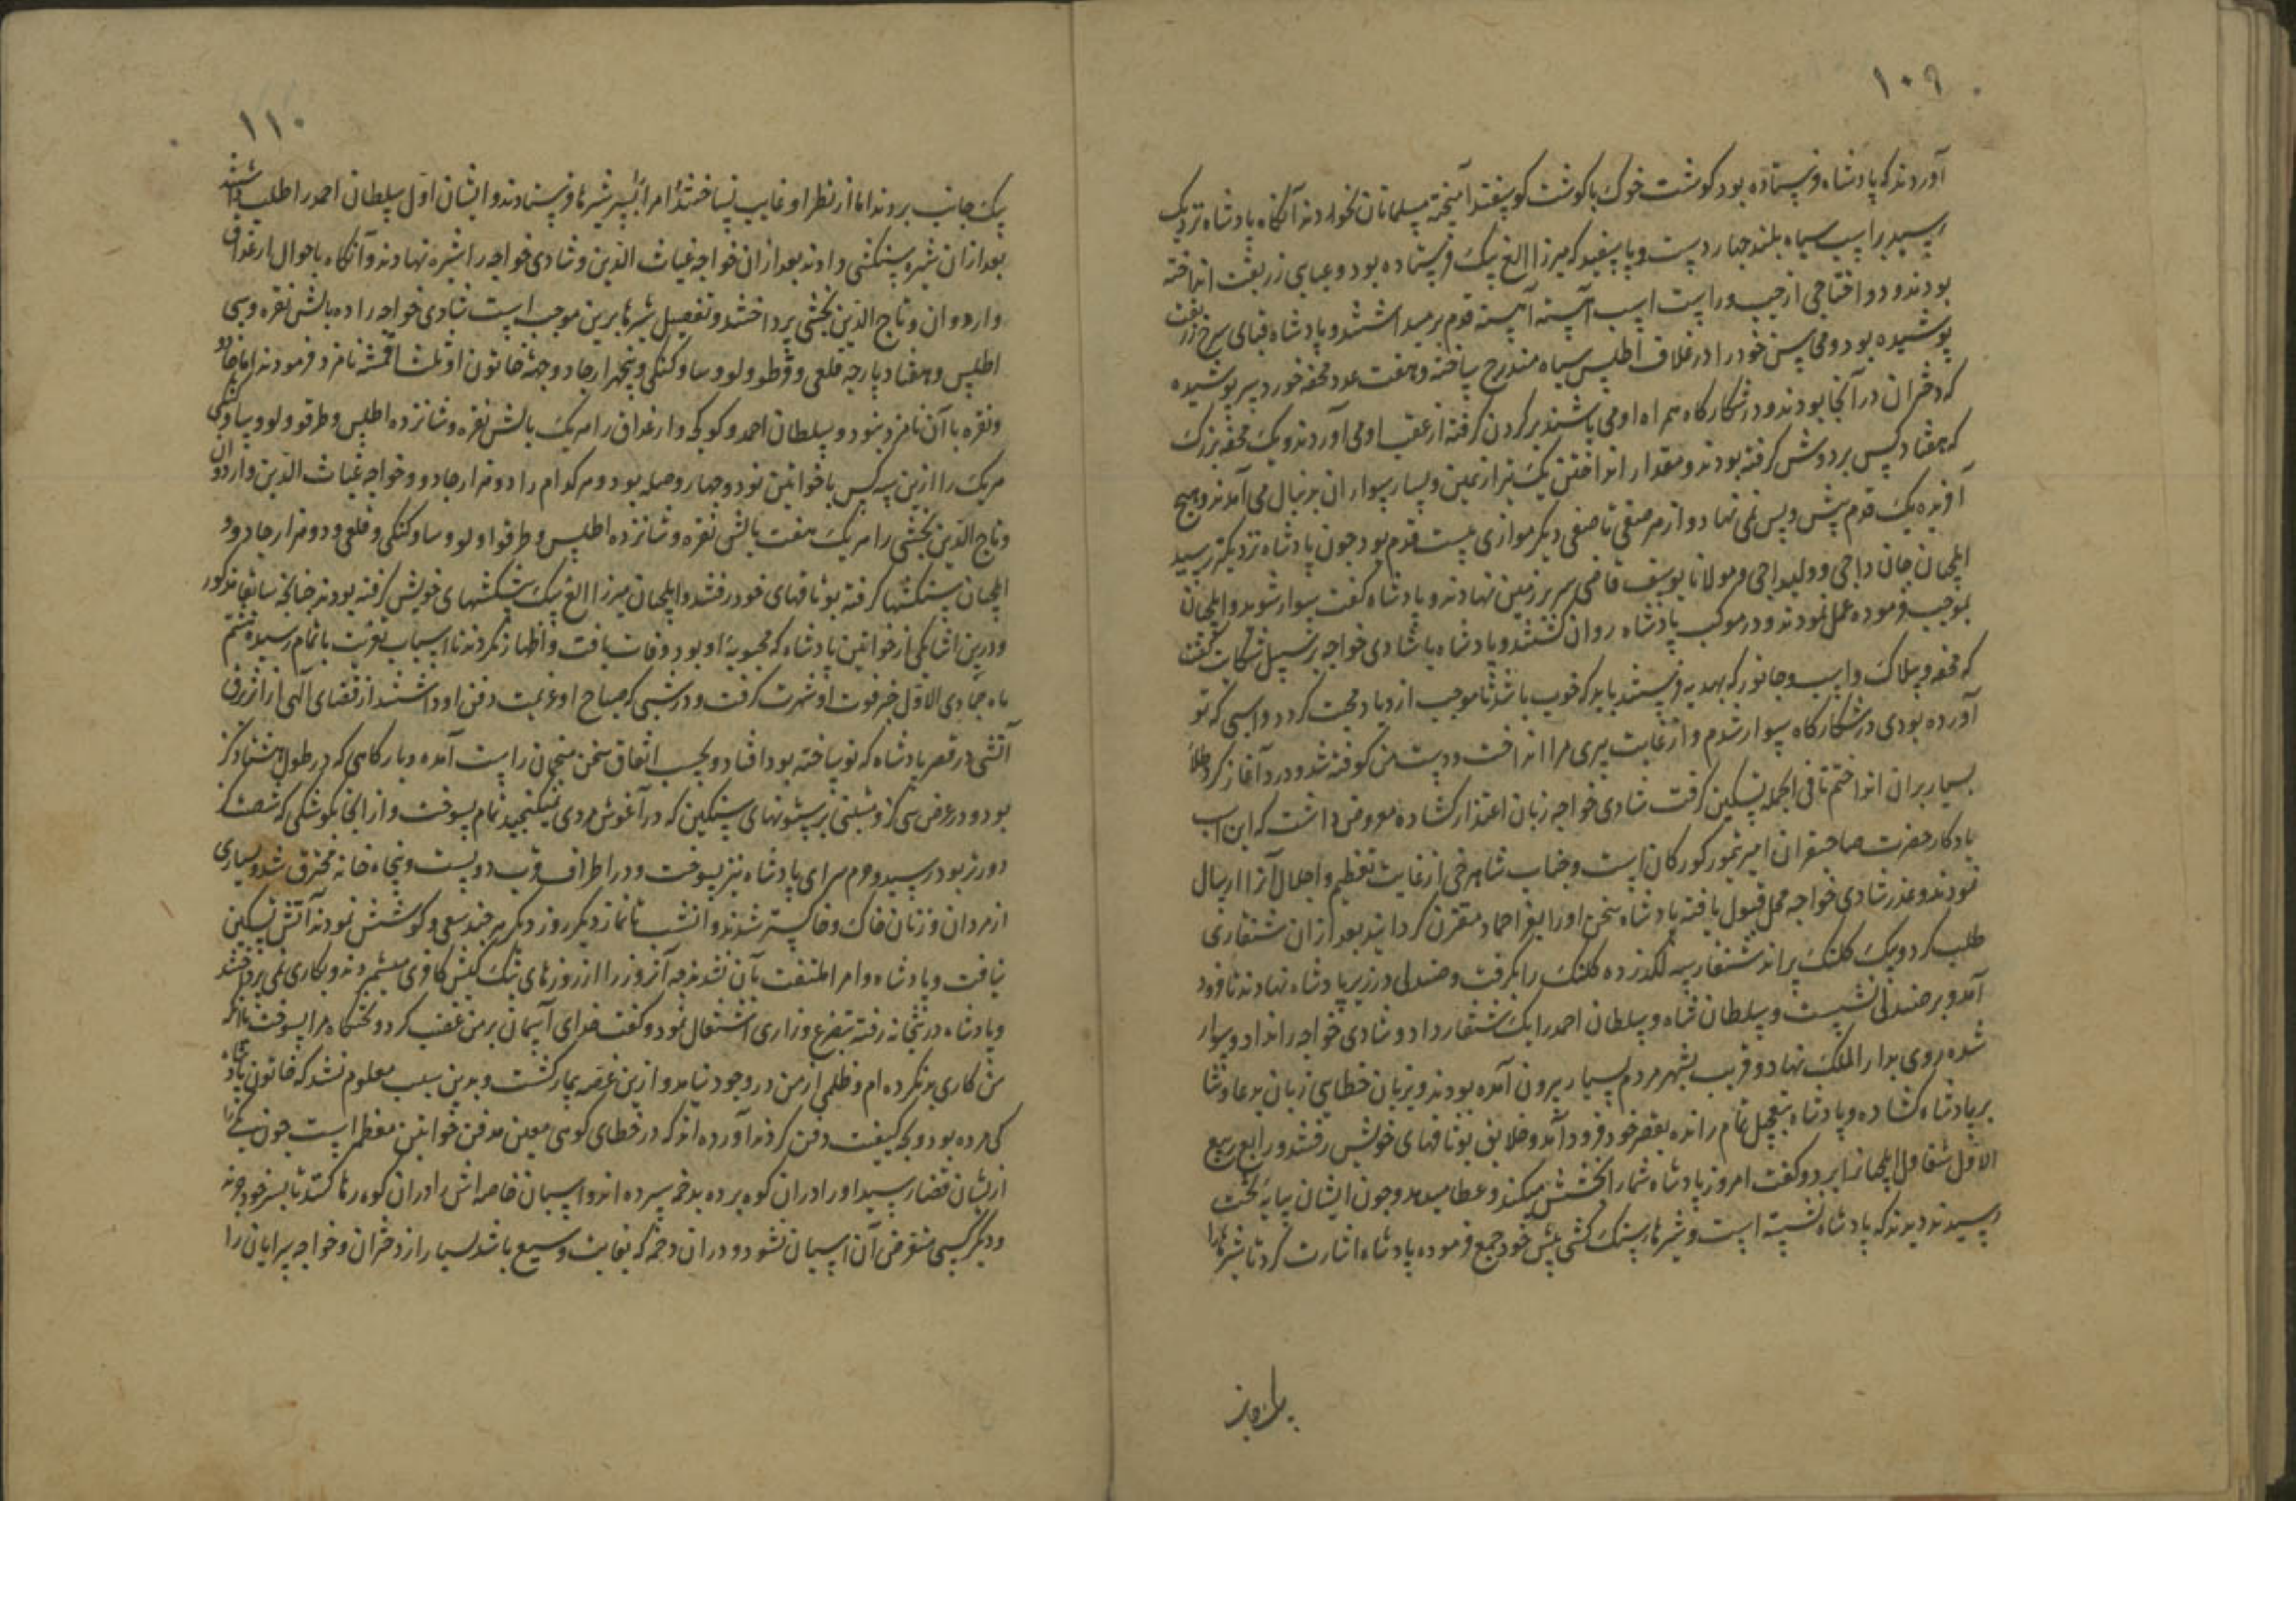 ۱۰۹
آوردند که پادشاه فرستاده بود کوشت خوک با کوشت کوسفند آمیخته مسلمانان نخوردند آنکاه پادشاه نزدیک
رسید بر اسب سیاه بلند چهار دست و پا سفید که میرزا الغ بیک فرستاده بود و عبای زربفت انداخته
بودند و دو اختاجی از چپ و راست اسب آهسته آهسته قدم بر میداشتند و پادشاه قبای سرخ زربفت
پوشیده بود و محاسن خود را در غلاف اطلس سیاه مندرج ساخته و هفت عدد محفه خورد سر پوشیده
که دختران در آنجا بودند و در شکارکاه همراه او می باشند بر کردن کرفته از عقب او می آوردند و یک محفه بزرک
که هفتاد کس بر دوش کرفته بودند و مقدار انداختن یک تیر از یمین و یسار سواران بدنبال می آمدند و هیچ
آفریده یک قدم پیش و پس نمی نهاد و از هر صفی تا صفی دیکر موازی بیست قدم بود چون پادشاه نزدیکتر رسید
ایلچیان جان داجی و ولیداجی و مولانا یوسف قاضی سر بر زمین نهادند و پادشاه کفت سوار شوید و ایلچیان
بموجب فرموده عمل نمودند و در موکب پادشاه روان کشتند و پادشاه با شادی خواجه بر سبیل شکایت کفت
که تحفه و بیلاک و اسب و جانور که بهدیه فرستند باید که خوب باشد تا موجب ازدیاد محبت کردد و اسبی که تو
آورده بودی در شکارکاه سوار شدم و از غایت پیری مرا انداخت و دست من کوفته شد و درد آغاز کرد طلا
بسیار بران انداختم تا فی الجمله تسکین کرفت شادی خواجه زبان اعتذار کشاده معروض داشت که این اسب
یادکار حضرت صاحبقران امیر تیمور کورکان است و جناب شاهرخی از غایت تعظیم و اجلال آنرا ارسال
نمودند و عذر شادی خواجه محل قبول یافته پادشاه سخن او را بعز احماد مقترن کردانید بعد از ان شنقاری
طلب کرد و یک کلنک پراند شنقار سه لکد زده کلنک را بکرفت و صندلی در زیر پادشاه نهادند تا فرود
آمد و بر صندلی نشست و سلطان شاه و سلطان احمد را یک شنقار داد و شادی خواجه را نداد و سوار
شده روی بدار الملک نهاد و قریب بشهر مردم بسیار بیرون آمده بودند و بزبان خطایی زبان بدعا و ثنا
بر پادشاه کشاده و پادشاه بتعجیل تمام رانده بقصر خود فرود آمد و خلایق بوثاقهای خویش رفتند و رابع ربیع
الاول شقاول ایلچیانرا برد و کفت امروز پادشاه شما را بخشش میکند و عطا میدهد و چون ایشان بپایه تخت
رسیدند دیدند که پادشاه نشسته است و شیرها سنک کشی پیش خود جمع فرموده پادشاه اشارت کرد تا شیرها را
یک جانب
۱۱۰
یک جانب بردند اما از نظر او غایب نساختند امرا بسر شیرها فرستادند و ایشان اول سلطان احمد را طلب داشتند
بعد از ان شیره سنکشی دادند بعد از ان خواجه غیاث الدین و شادی خواجه را شیره نهادند و آنکاه باحوال ارغداق
و اردوان و تاج الدین بخشی پرداختند و تفصیل شیرها برین موجب است شادی خواجه را ده بالش نقره و سی
اطلس و هفتاد پارچه قلعی و طرقو و لوو و ساو کنکی و پنجهزار جاو و جهة خاتون او ثلث اقمشه نامزد فرمودند اما جاو
و نقره با آن نامزد نبود و سلطان احمد و کوکجه و ارغداق را هر یک بالش نقره و شانزده اطلس و طرقو و لوو و ساو کنکی
هر یک را ازین سه کس با خواتین نود و چهار وصله بود و هر کدام را دو هزار جاو و خواجه غیاث الدین و اردوان
و تاج الدین بخشی را هر یک هفت بالش نقره و شانزده اطلس و طرقو و لوو و ساو کنکی و قلعی و دو هزار جاو
ایلچیان پیشکشها کرفته بوثاقهای خود رفتند و ایلچیان میرزا الغ بیک پیشکشهای خویش کرفته بودند چنانچه سابقا مذکور
و درین اثنا یکی از خواتین پادشاه که محبوبه او بود وفات یافت و اظهار نکردند تا اسباب تعزیت باتمام رسید هشتم
ماه جمادی الاول خبر فوت او شهرت کرفت و در شبی که صباح او عزیمت دفن او داشتند از قضای الهی از اثر برق
آتشی در قصر پادشاه که نو ساخته بود افتاد و بحسب اتفاق سخن منجمان راست آمده و بارکاهی که در طول هشتاد کز
بود و در عرض سی کز و مبنی بر ستونهای سنکین که در آغوش مردی نمیکنجید تمام بسوخت و از انجا بکوشکی که شصت کز
دورتر بود رسید و حرم سرای پادشاه نیز بسوخت و در اطراف قریب دویست و پنجاه خانه محترق شد و بسیاری
از مردان و زنان خاک و خاکستر شدند و آنشب تا نماز دیکر روز دیکر هر چند سعی و کوشش نمودند آتش تسکین
نیافت و پادشاه و امرا ملتفت بآن نشدند چه آنروز را از روزهای نیک کیش کافری میشمردند و بکاری نمی پرداختند
و پادشاه در بتخانه رفته بتضرع و زاری اشتغال نمود و کفت خدای آسمان بر من غضب کرد و تختکاه مرا بسوخت با آنکه
من کاری بد نکرده ام و ظلمی از من در وجود نیامد و ازین غصه بیمار کشت و بدین سبب معلوم نشد که خاتون پادشاه
کی مرده بود و بچه کیفیت دفن کردند آورده اند که در خطای کوهی معین مدفن خواتین معظم است چون یکی را
ازیشان قضا رسید او را در ان کوه برده بدخمه سپرده اند و اسبان خاصه اش را در ان کوه رها کنند تا بسر خود چرند
و دیکر کسی متعرض آن اسبان نشود و در ان دخمه که بغایت وسیع باشد بسیار از دختران و خواجه سرایان را